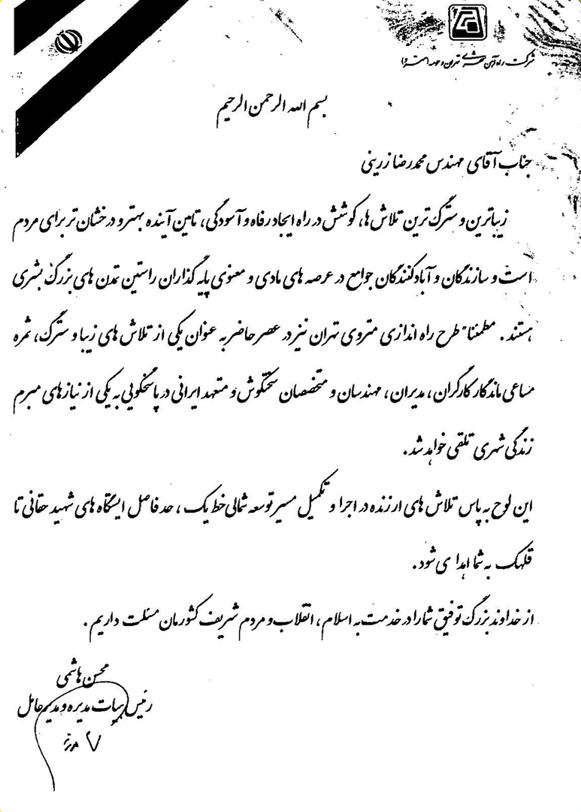 شرکت راه آهن شهری تهران و حومه (مترو)
بسم الله الرحمن الرحیم
جناب آقای مهندس محمدرضا زرینی
زیباترین و سترگ ترین تلاش ها، کوشش در راه ایجاد رفاه و آسودگی، تامین آینده بهتر و درخشان تر برای مردم
است و سازندگان و آبادکنندگان جوامع در عرصه های مادی و معنوی پایه گذاران راستین تمدن های بزرگ بشری
هستند. مطمئناً طرح راه اندازی متروی تهران نیز در عصر حاضر به عنوان یکی از تلاش های زیبا و سترگ، ثمره
مساعی ماندگار کارگران، مدیران، مهندسان و متخصصان سختکوش و متعهد ایرانی در پاسخگویی به یکی از نیازهای مبرم
زندگی شهری تلقی خواهد شد.
این لوح به پاس تلاش های ارزنده در اجرا و تکمیل مسیر توسعه شمالی خط یک، حد فاصل ایستگاه های شهید حقانی تا
قلهک به شما اهدا می شود.
از خداوند بزرگ توفیق شما را در خدمت به اسلام، انقلاب و مردم شریف کشورمان مسئلت داریم.
محسن هاشمی
رئیس هیات مدیره و مدیرعامل